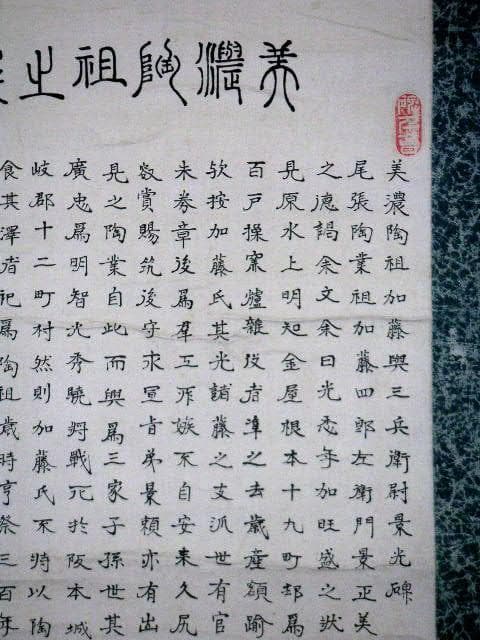 美濃陶祖之
美濃陶祖加藤與三兵衛尉景光碑
尾張陶業祖加藤四郎左衛門景正美
之德謁余文余曰光年加旺盛之狀
見原水上明知金屋根本十九町邨爲
百戶操窯爐雜役者準之去歲産額踰
欤按加藤氏其光藤之支派世有官
朱券章後爲羣工所嫉不自安来久尻
数賞賜筑後守求宣旨弟景賴亦有出
見之陶業自此而興爲三家子孫世其
廣忠爲明智光秀驍將戰死於阪本城
岐郡十二町村然則加藤氏不特以陶
食其澤者祀爲陶祖歳時亨祭三百年